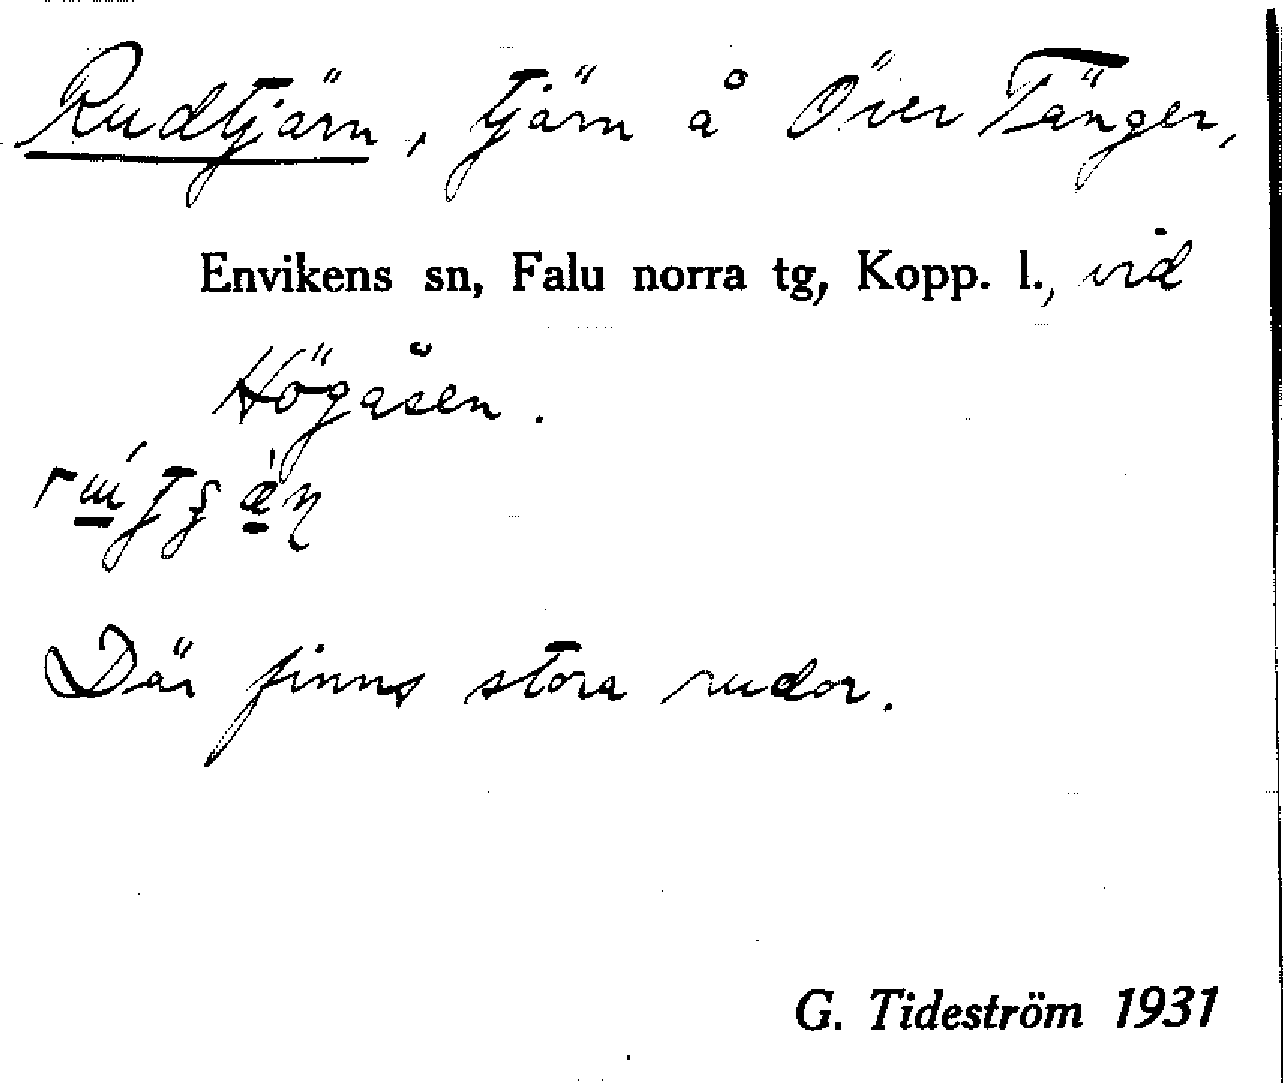 Rudtjärn, tjärn å Över Tänger,
Envikens sn, Falu norra tg, Kopp. l., vid
Högåsen.
Där finns stora rudor.
G. Tideström 1931